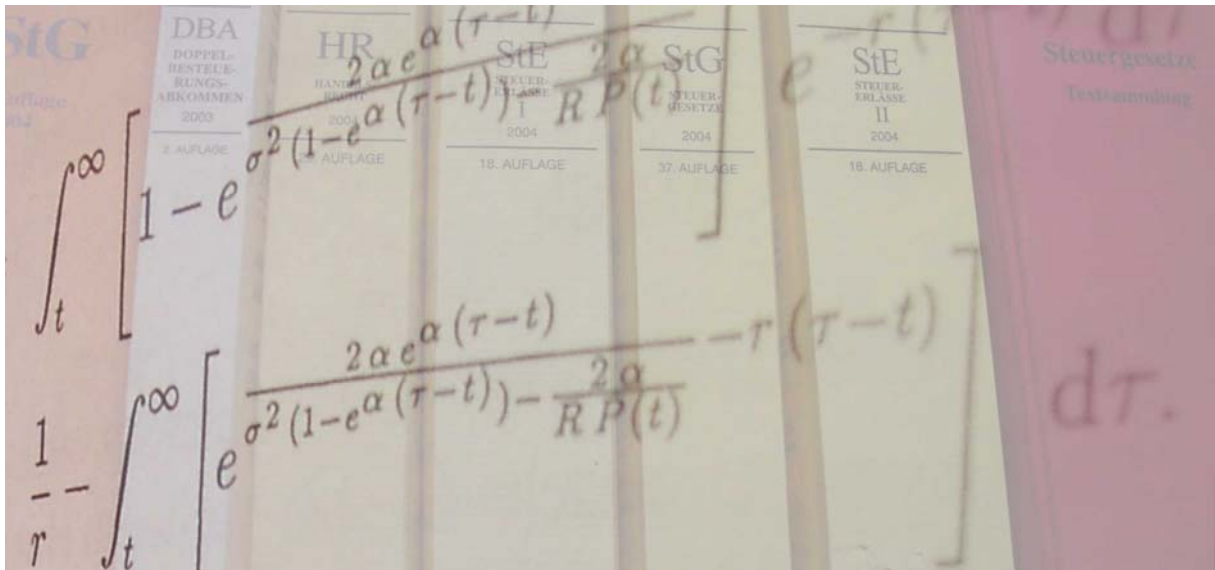 StG
DBA
DOPPEL-
BESTEUE-
RUNGS-
ABKOMMEN
2003
2. AUFLAGE
HR
HANDELS-
RECHT
2004
AUFLAGE
StE
STEUER-
ERLÄSSE
I
2004
18. AUFLAGE
StG
STEUER-
GESETZE
2004
37. AUFLAGE
StE
STEUER-
ERLÄSSE
II
2004
18. AUFLAGE
Steuergesetze
Textsammlung
∫_t^∞ [ 1 − e^{\frac{2 α e^{α (τ−t)}}{σ^2 (1−e^{α (τ−t)})−\frac{2 α}{R P(t)}}} ] e^{−r (τ−t)} dτ
\frac{1}{r} − ∫_t^∞ [ e^{\frac{2 α e^{α (τ−t)}}{σ^2 (1−e^{α (τ−t)})−\frac{2 α}{R P(t)}} −r (τ−t)} ] dτ.